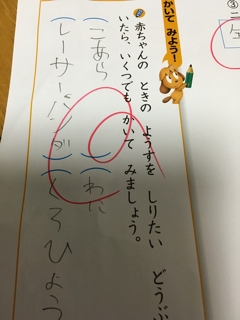 ③
かいて みよう！
赤ちゃんの ときの ようすを しりたい どうぶ
いたら、いくつでも かいて みましょう。
こあら）（わに
レーサーパンダ）（くろひょう